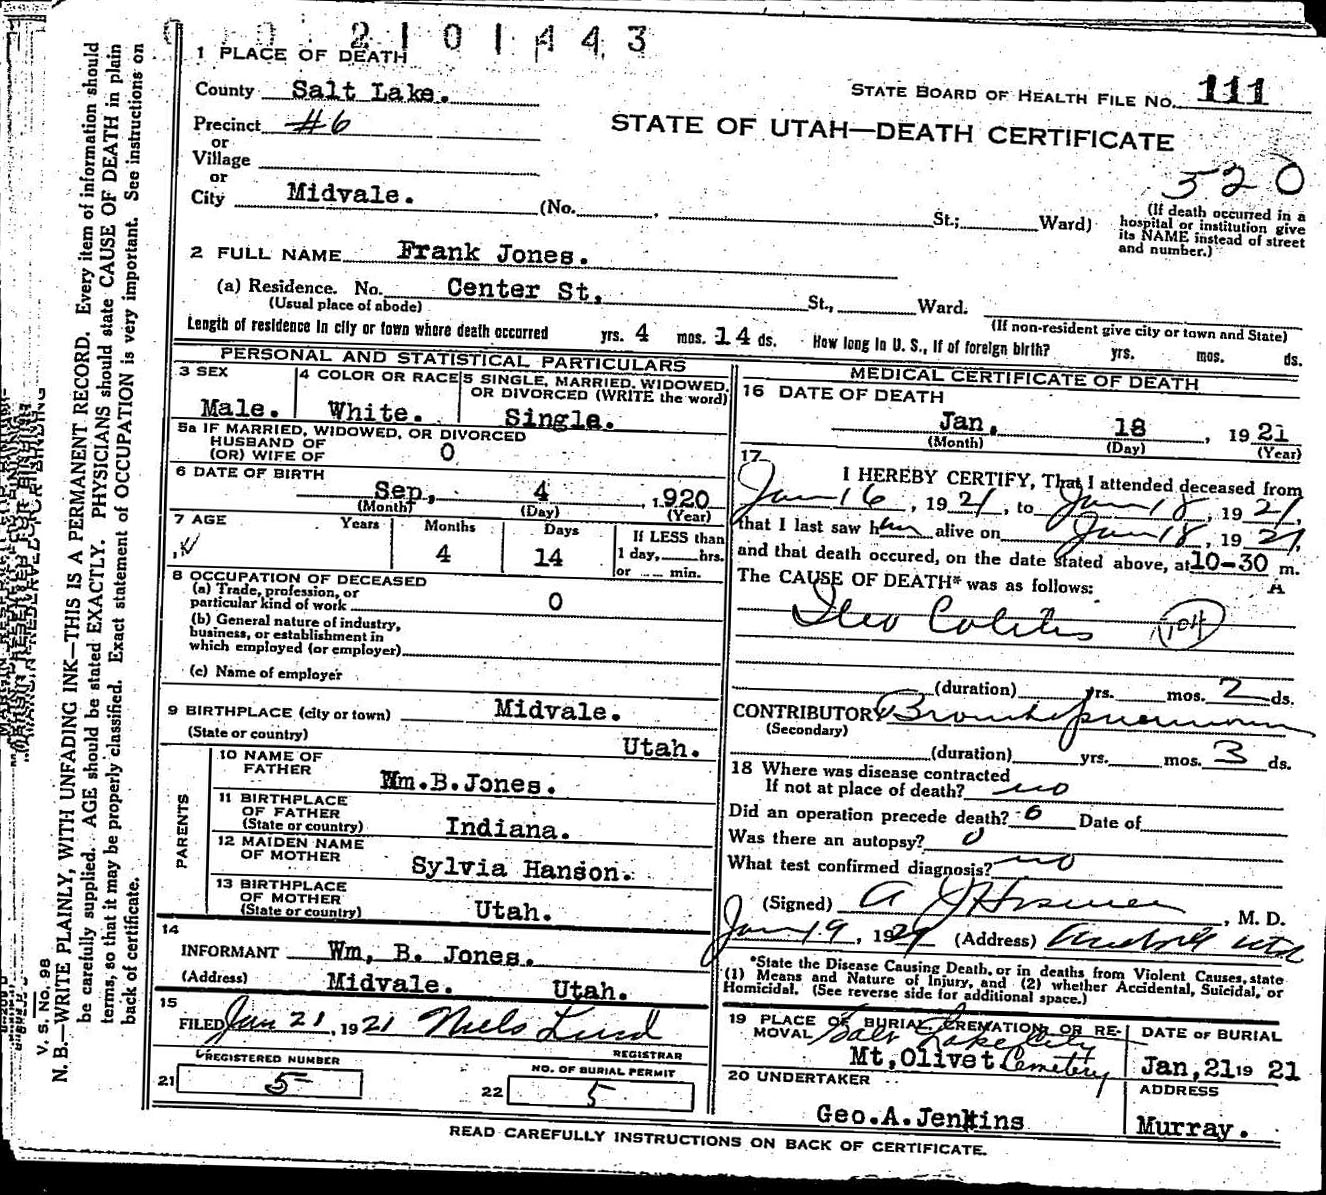 2101443
1 PLACE OF DEATH
County Salt Lake.
STATE BOARD OF HEALTH FILE NO. 111
Precinct #6
STATE OF UTAH—DEATH CERTIFICATE
or
Village
520
or
City Midvale. (No. , St.; Ward)
(If death occurred in a
hospital or institution give
its NAME instead of street
and number.)
2 FULL NAME Frank Jones.
(a) Residence. No. Center St, St., Ward.
(Usual place of abode)
(If non-resident give city or town and State)
Length of residence in city or town where death occurred yrs. 4 mos. 14 ds. How long in U. S., if of foreign birth? yrs. mos. ds.
PERSONAL AND STATISTICAL PARTICULARS
3 SEX
Male.
4 COLOR OR RACE
White.
5 SINGLE, MARRIED, WIDOWED,
OR DIVORCED (WRITE the word)
Single.
5a IF MARRIED, WIDOWED, OR DIVORCED
HUSBAND OF
(OR) WIFE OF 0
6 DATE OF BIRTH
Sep, 4 , 1920
(Month) (Day) (Year)
7 AGE Years Months Days
4 14
If LESS than
1 day, hrs.
or min.
8 OCCUPATION OF DECEASED
(a) Trade, profession, or
particular kind of work 0
(b) General nature of industry,
business, or establishment in
which employed (or employer)
(c) Name of employer
9 BIRTHPLACE (city or town) Midvale.
(State or country) Utah.
PARENTS
10 NAME OF
FATHER Wm.B.Jones.
11 BIRTHPLACE
OF FATHER
(State or country) Indiana.
12 MAIDEN NAME
OF MOTHER Sylvia Hanson.
13 BIRTHPLACE
OF MOTHER
(State or country) Utah.
14
INFORMANT Wm, B. Jones.
(Address) Midvale. Utah.
15
FILED Jan 21, 1921 Niels Lind
REGISTRAR
21 REGISTERED NUMBER
5
22 NO. OF BURIAL PERMIT
5
MEDICAL CERTIFICATE OF DEATH
16 DATE OF DEATH
Jan, 18 , 1921
(Month) (Day) (Year)
17 I HEREBY CERTIFY, That I attended deceased from
Jan 16 , 1921, to Jan 18, 1921,
that I last saw him alive on Jan 18, 1921,
and that death occured, on the date stated above, at 10-30 m.
The CAUSE OF DEATH* was as follows: A
Ileo Colitis 104
(duration) yrs. mos. 2 ds.
CONTRIBUTORY Bronchopneumonia
(Secondary)
(duration) yrs. mos. 3 ds.
18 Where was disease contracted
If not at place of death? no
Did an operation precede death? 0 Date of
Was there an autopsy? 0
What test confirmed diagnosis? no
(Signed) A J Hosmer, M. D.
Jan 19, 1921 (Address) Utd
*State the Disease Causing Death, or in deaths from Violent Causes, state
(1) Means and Nature of Injury, and (2) whether Accidental, Suicidal, or
Homicidal. (See reverse side for additional space.)
19 PLACE OF BURIAL, CREMATION, OR RE-
MOVAL Salt Lake City
Mt,Olivet Cemetery
DATE OF BURIAL
Jan,21 19 21
20 UNDERTAKER
Geo.A.Jenkins
ADDRESS
Murray.
READ CAREFULLY INSTRUCTIONS ON BACK OF CERTIFICATE.
V. S. No. 98
N. B.—WRITE PLAINLY, WITH UNFADING INK—THIS IS A PERMANENT RECORD. Every item of information should
be carefully supplied. AGE should be stated EXACTLY. PHYSICIANS should state CAUSE OF DEATH in plain
terms, so that it may be properly classified. Exact statement of OCCUPATION is very important. See instructions on
back of certificate.